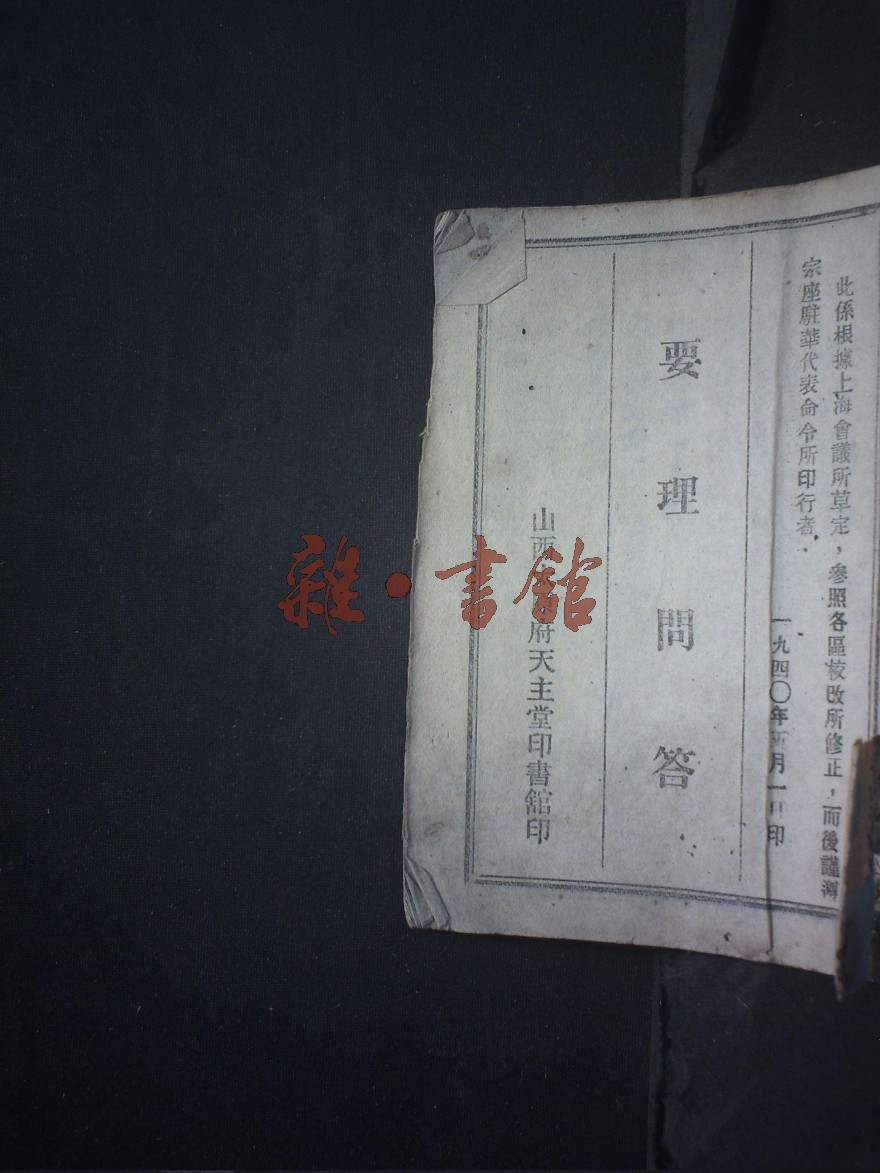 此係根據上海會議所草定，參照各區校改所修正，而後謹遵
宗座駐華代表命令所印行者．
一九四〇年 月一日印
要理問答
山西 府天主堂印書舘印
雜・書舘